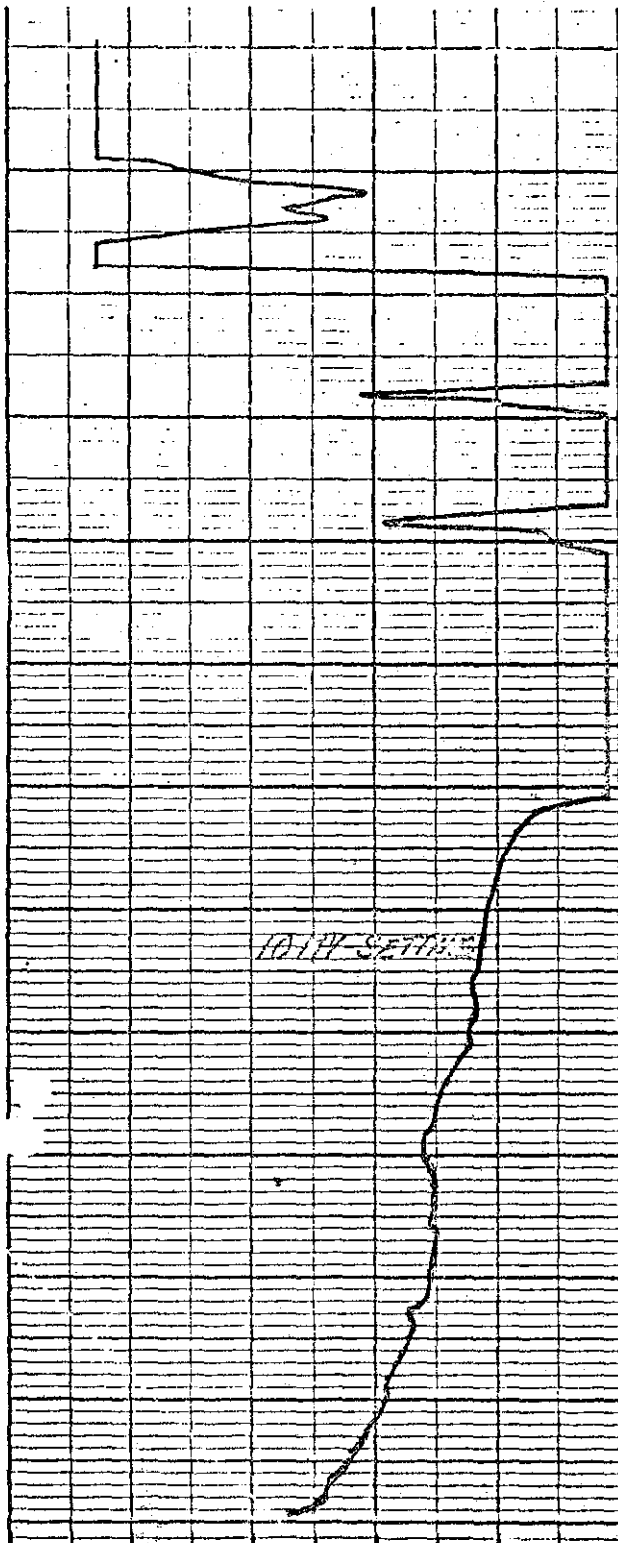 10 IN SETTING